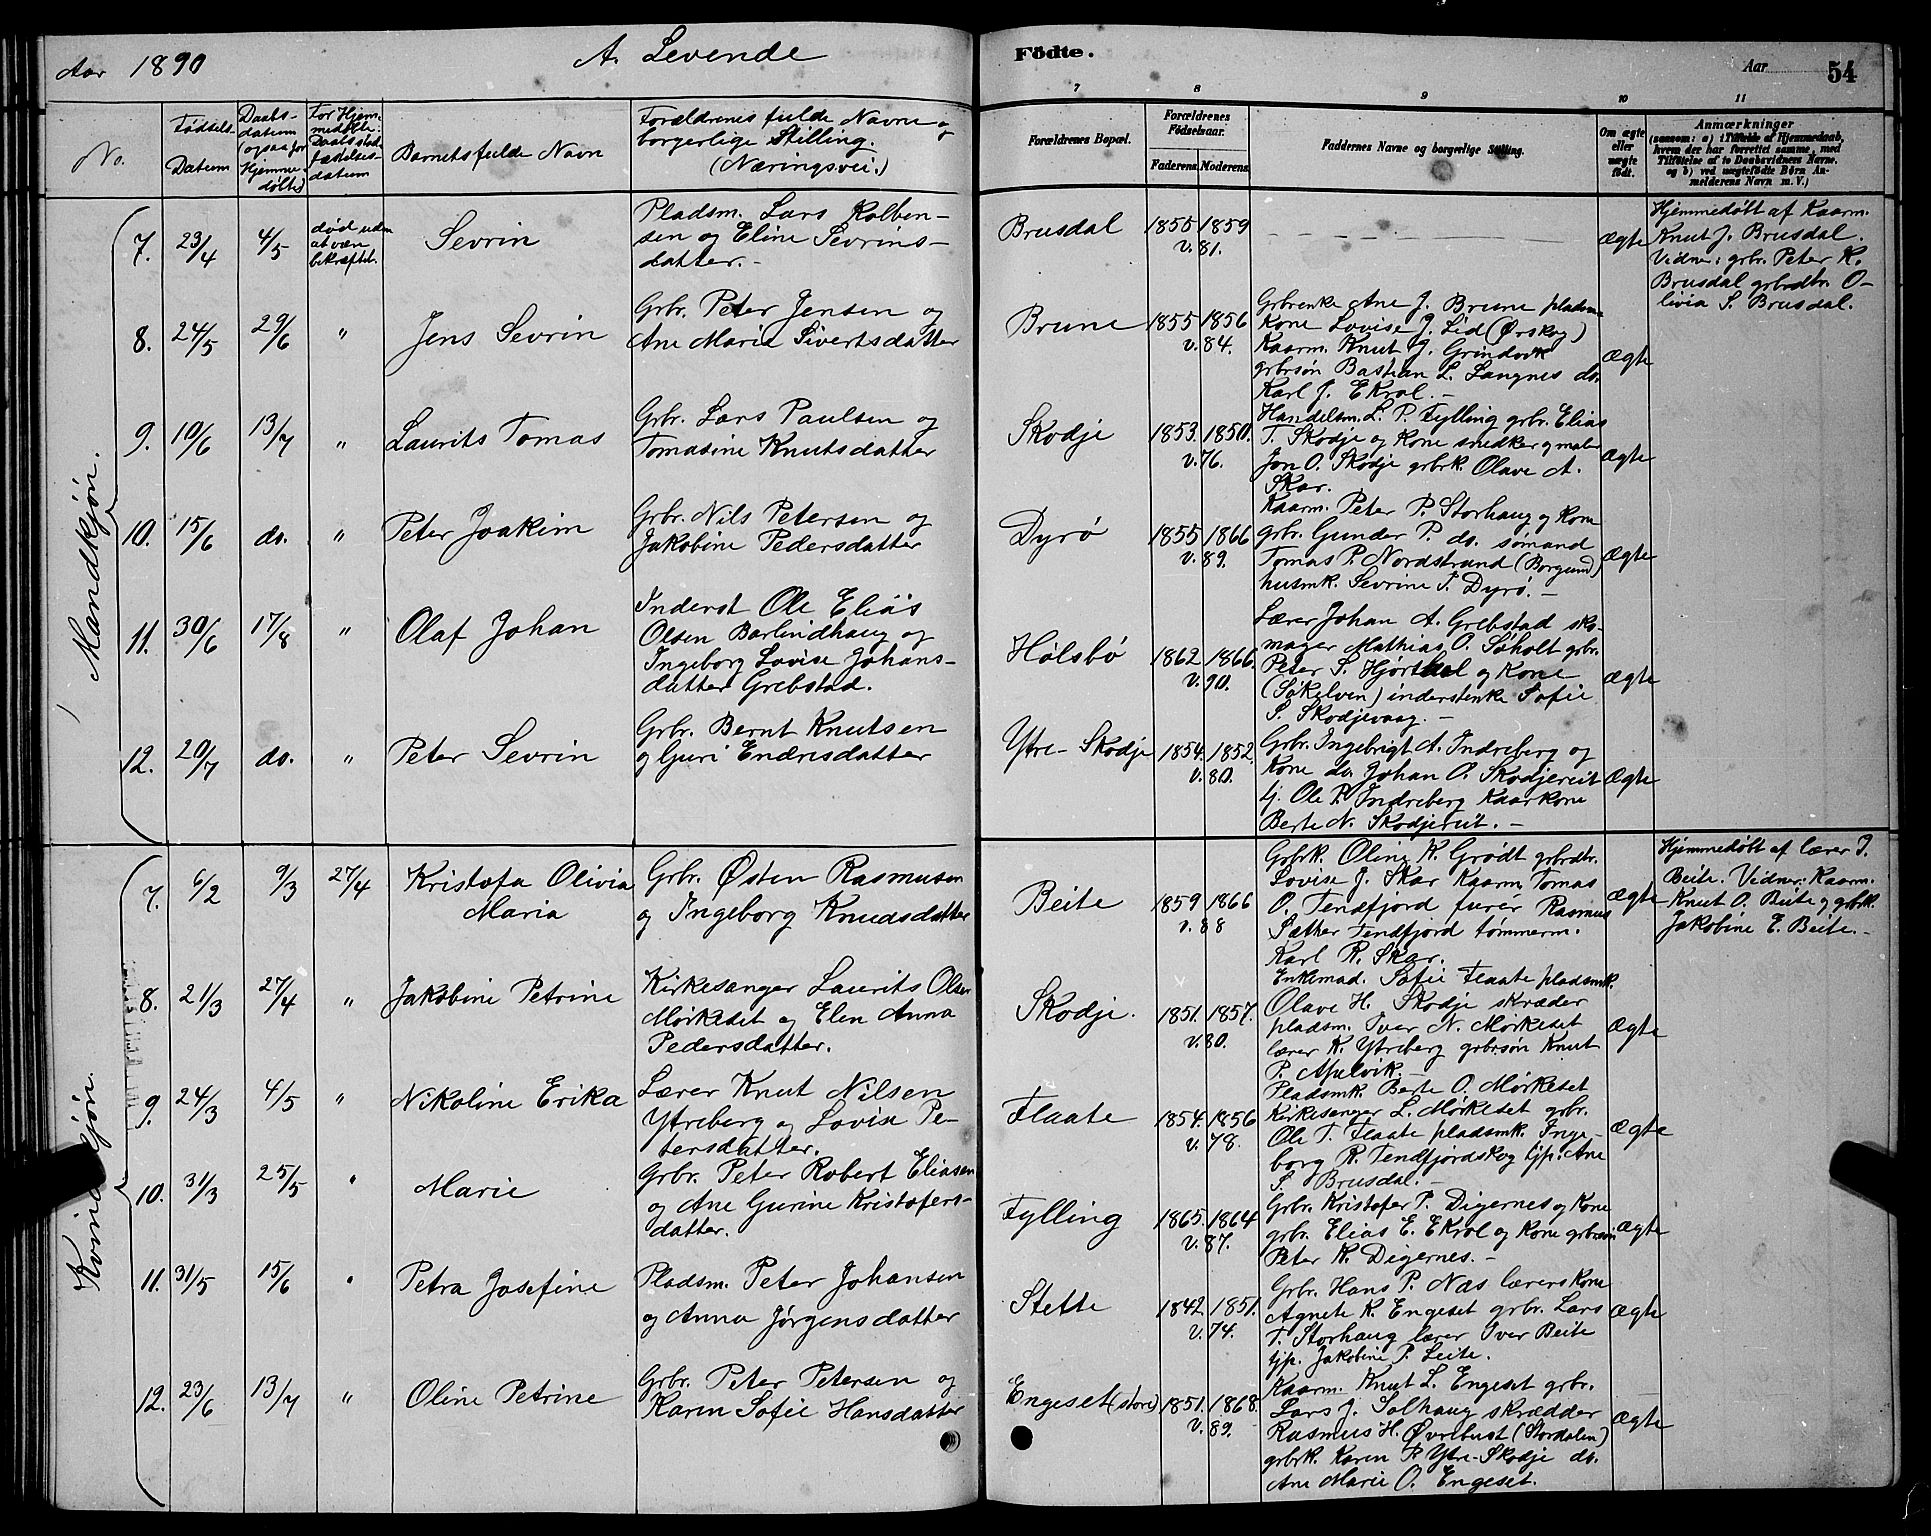 Aar 1890 A. Levende
Födte. Aar 54
No.
Fødsels-
Datum
Daabs-
datum
(ogsaa for
Hjemme-
døbte)
For Hjem-
medøbte:
datum
Barnets fulde Navn
Forældrenes fulde Navne og
borgerlige Stilling.
(Næringsvei.)
7 8 9 10 11
Forældrenes Bopæl.
Forældrenes
Födselsaar.
Faderens. Moderens.
Faddernes Navne og borgerlige Stilling.
Om ægte
eller
uægte
født.
Anmærkninger
(saasom: a) i Tilfælde af Hjemmedaab,
hvem der har forrettet samme, med
Tilföielse af to Daabsvidners Navne,
og b) ved uægtefødte Börn An-
melderens Navn m. V.)
Mandkjøn.
7. 23/4 4/5
død uden
at være
bekræftet.
Sevrin
Pladsm. Lars Kolben-
sen og Eline Sevrins-
datter.-
Brusdal 1855 1859
v. 81.
Ægte
Hjemmedøbt af Kaarm.
Knut J. Brusdal.
Vidner: grbr. Peter K.
Brusdal grbrdtr. O-
livia S. Brusdal.
8. 24/5 29/6 " Jens Sevrin
Grbr. Peter Jensen og
Ane Marie Sivertsdatter
Brune 1855 1856
v. 84.
Grbrenke Ane J. Brune pladsm-
kone Lovise J. Lid (Ørskog)
Kaarm. Knut J. Grindvik
grbrsøn Bastian L. Langnes do.
Karl J. Ekrol.-
Ægte
9. 10/6 13/7 " Laurits Tomas
Grbr. Lars Paulsen og
Tomasine Knutsdatter
Skodje 1853. 1850.
v. 76.
Handelsm. L. P. Fylling grbr. Elias
T. Skodje og Kone snedker og maler
Jon O. Skodje grbrk. Olave A.
Skar.
Ægte
10. 15/6 do. " Peter Joakim
Grbr. Nils Petersen og
Jakobine Pedersdatter
Dyrø 1855 1866
v. 89.
Kaarm. Peter P. Storhaug og Kone
grbr. Gunder P. do. sømand
Tomas P. Nordstrand (Borgund)
husmk. Sevrine I. Dyrø.-
Ægte
11. 30/6 17/8 " Olaf Johan
Inderst Ole Elias
Olsen Barlindhaug og
Ingeborg Lovise Johans-
datter Grebstad.
Hølsbø 1862 1866.
v. 90.
Lærer Johan A. Grebstad sko-
mager Mathias O. Søholt grbr.
Peter S. Hjørtdal og Kone
(Søkelven) inderstenke Sofie
S. Skodjevaag.-
Ægte
12. 20/7 do. " Peter Sevrin
Grbr. Bernt Knutsen
og Guri Endresdatter
Ytre-Skodje 1854. 1852.
v. 80.
Grbr. Ingebrigt A. Indreberg og
Kone do. Johan O. Skodjereit
tj. Ole P. Indreberg Kaarkone
Berte N. Skodjereit.-
Ægte
Kvindekjøn.
7. 6/2 9/3 27/4 Kristofa Olivia
Maria
Grbr. Østen Rasmusen
og Ingeborg Knudsdatter
Beite 1859 1866
v. 88
Grbrk. Oline K. Grødt grbrdtr.
Lovise J. Skar Kaarm. Tomas
O. Tendfjord furér Rasmus
Sæther Tendfjord tømmerm.
Karl R. Skar.
Ægte
Hjemmedøbt af lærer I.
Beite. Vidner: Kaarm.
Knut O. Beite og grbrk.
Jakobine E. Beite.-
8. 21/3 27/4 " Jakobine Petrine
Kirkesanger Laurits Olsen
Mørkeset og Elen Anna
Pedersdatter.
Skodje. 1851. 1857.
v. 80.
Enkemad. Sofie Flaate pladsmk.
Olave H. Skodje skræder
pladsm. Iver N. Mørkeset
lærer K. Ytreberg grbrsøn Knut
P. Apelvik.-
Ægte
9. 24/3 4/5 " Nikoline Erika
Lærer Knut Nilsen
Ytreberg og Lovise Pe-
tersdatter.
Flaate 1854. 1856
v. 78.
Pladsmk. Berte O. Mørkeset
Kirkesanger L. Mørkeset grbr.
Ole T. Flaate pladsmk. Inge-
borg R. Tendfjordskog tjp. Ane
S. Brusdal.-
Ægte
10. 31/3 25/5 " Marie
Grbr. Peter Robert Eliasen
og Ane Gurine Kristofers-
datter.
Fylling 1865. 1864
v. 87.
Grbr. Kristofer P. Digernes og Kone
grbr. Elias E. Ekrol og Kone grbrsøn
Peter K. Digernes.-
Ægte
11. 31/5 15/6 " Petra Josefine
Pladsm. Peter Johansen
og Anna Jørgensdatter
Stette 1842. 1851.
v. 74.
Grbr. Hans P. Næs lærers Kone
Agnete K. Engeset grbr. Lars
T. Storhaug lærer Iver Beite
tjp. Jakobine P. Leite.
Ægte
12. 23/6 13/7 " Oline Petrine
Grbr. Peter Petersen og
Karen Sofie Hansdatter
Engeset (store) 1851. 1868.
v. 89.
Kaarm. Knut L. Engeset grbr.
Lars J. Solhaug skrædder
Rasmus H. Øvrebust (Stordalen)
grbrk. Karen P. Ytre-Skodje do.
Ane Marie O. Engeset.
Ægte